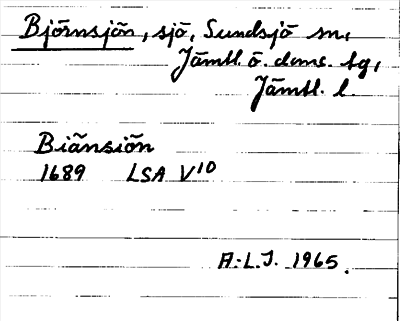 Björnsjön, sjö, Sundsjö sn,
Jämtl. ö. doms. tg,
Jämtl. l.
Biänsiön
1689 LSA V10
A.L.J. 1965.